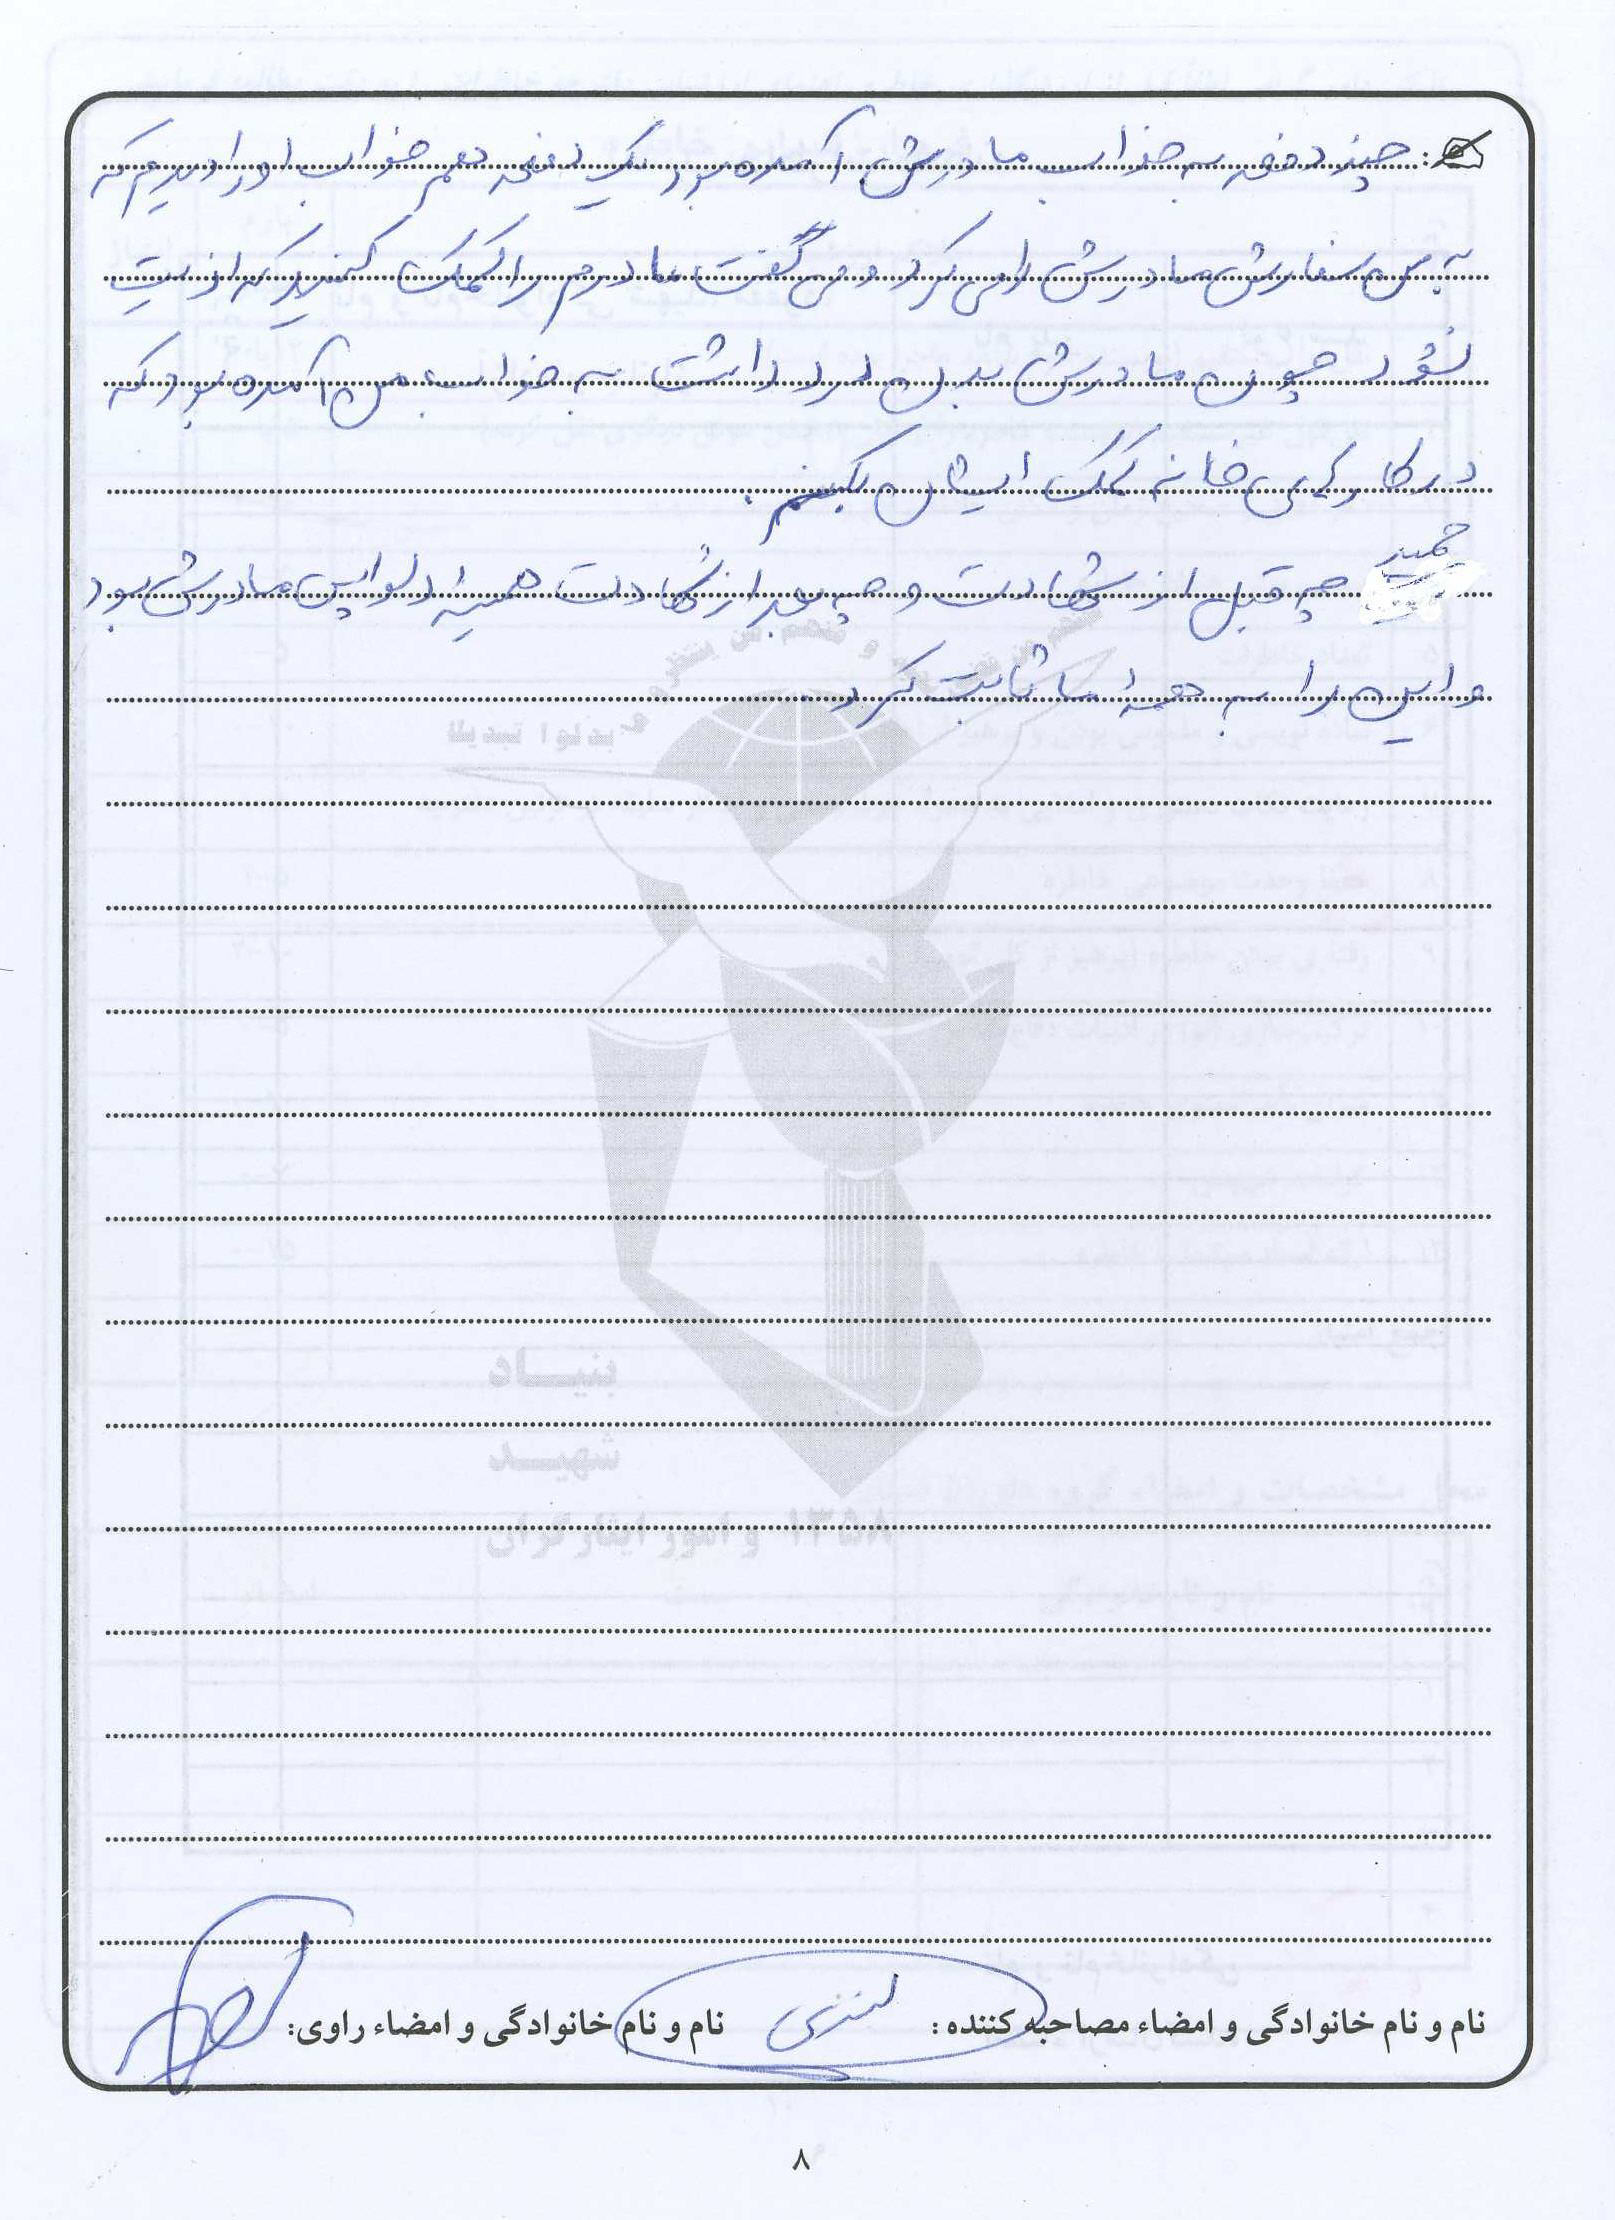 چند دفعه به خواب مادرش آمده بود یک دفعه هم خواب او را دیدم که
به من سفارش مادرش را می کرد و می گفت مادرم را کمک کنید که اذیت
نشود چون مادرش بدن درد داشت به خواب من آمده بود که
در کارهای خانه کمک ایشان بکنم.
حمید چه قبل از شهادت و چه بعد از شهادت همیشه دلواپس مادرش بود
و این را به همه ما ثابت کرد.
بنیاد
شهید
و امور ایثارگران ۱۳۵۸
نام و نام خانوادگی و امضاء مصاحبه کننده:
نام و نام خانوادگی و امضاء راوی:
۸